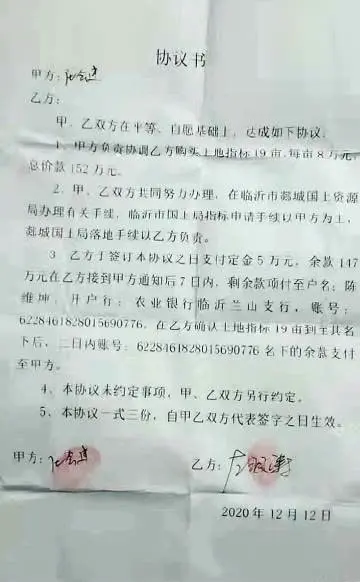 协议书
甲方：
乙方：
甲、乙双方在平等、自愿基础上，达成如下协议。
1、甲方负责协调乙方购买土地指标19亩，每亩8万元，
总价款152万元。
2、甲、乙双方共同努力办理，在临沂市郯城国土资源
局办理有关手续，临沂市国土局指标申请手续以甲方为主，
郯城国土局落地手续以乙方负责。
3、乙方于签订本协议之日支付定金5万元，余款147
万元在乙方接到甲方通知后7日内，剩余款项付至户名：陈
维坤，开户行：农业银行临沂兰山支行，账号：
6228461828015690776，在乙方确认土地指标19亩到至其名
下后，二日内账号：6228461828015690776名下的余款支付
至甲方。
4、本协议未约定事项，甲、乙双方另行约定。
5、本协议一式三份，自甲乙双方代表签字之日生效。
甲方：
乙方：
2020年12月12日